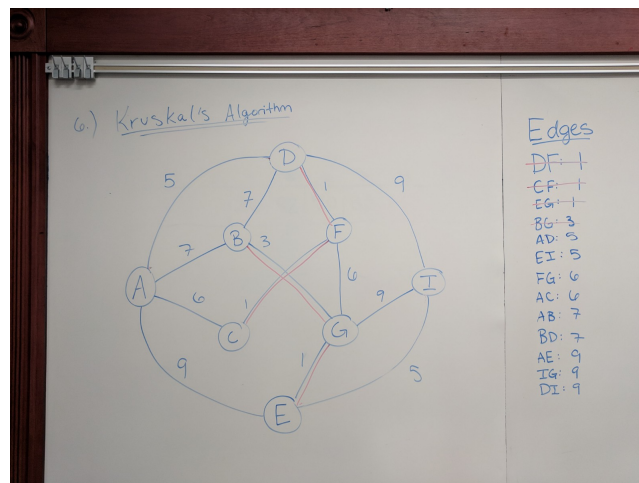 6.) Kruskal's Algorithm
D
5
7
1
9
B
3
F
7
6
A
6
I
1
9
C
G
9
1
5
E
Edges
DF: 1
CF: 1
EG: 1
BG: 3
AD: 5
EI: 5
FG: 6
AC: 6
AB: 7
BD: 7
AE: 9
IG: 9
DI: 9